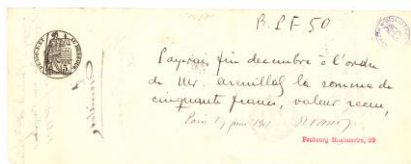 B.P.F 50
Payrai fin decembre à l'ordre
de Mr. la somme de
cinquante francs, valeur recue,
Paris 17 juin
Faubourg Montmartre, 23